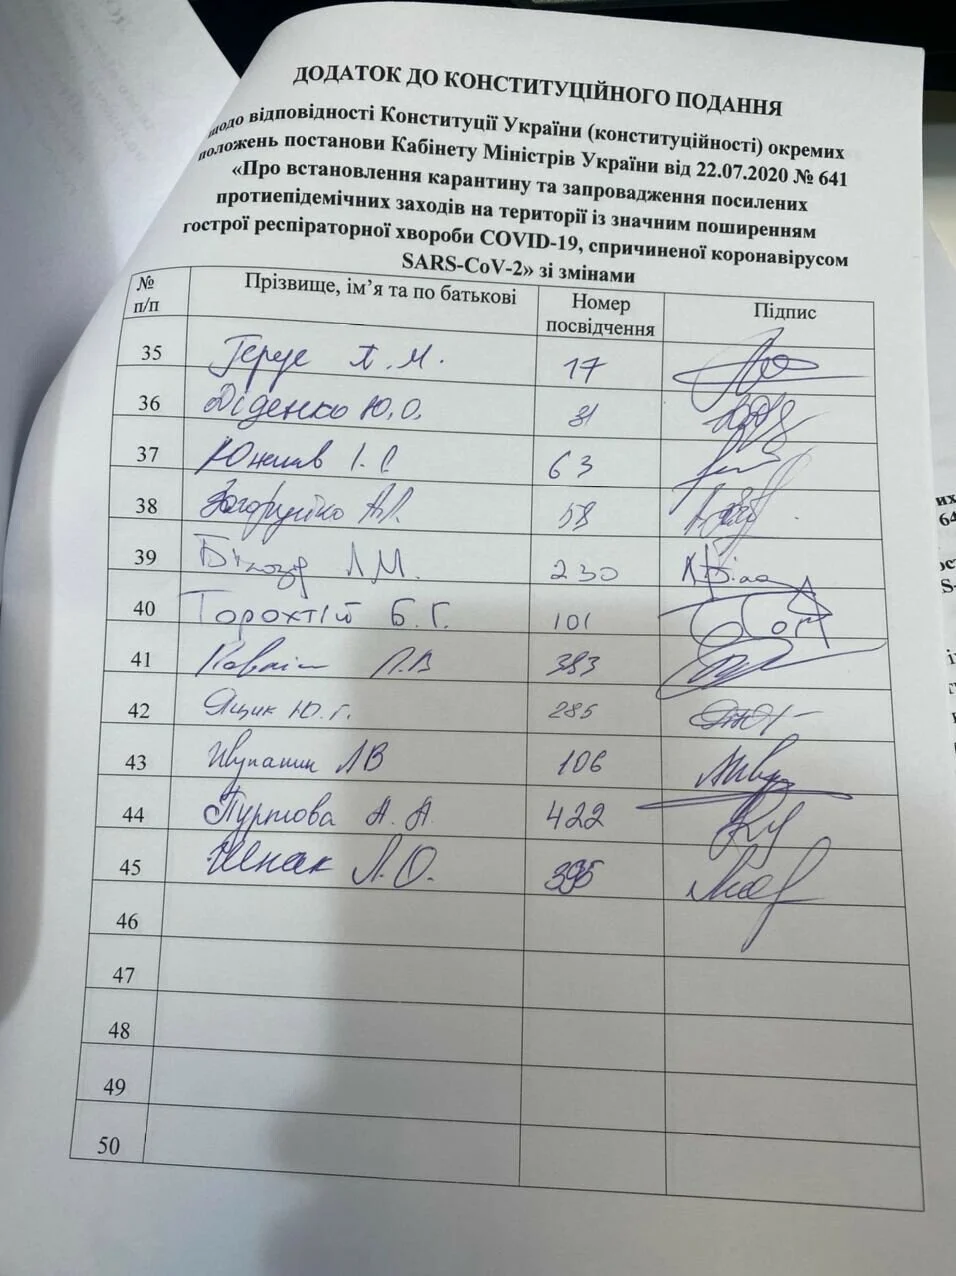 ДОДАТОК ДО КОНСТИТУЦІЙНОГО ПОДАННЯ
щодо відповідності Конституції України (конституційності) окремих
положень постанови Кабінету Міністрів України від 22.07.2020 № 641
«Про встановлення карантину та запровадження посилених
протиепідемічних заходів на території із значним поширенням
гострої респіраторної хвороби COVID-19, спричиненої коронавірусом
SARS-CoV-2» зі змінами
№ п/п Прізвище, ім’я та по батькові Номер посвідчення Підпис
35 Герус А. М. 17
36 Діденко Ю.О. 31
37 Юнаков І. С. 63
38 Загоруйко А.Л. 58
39 Білозір Л М. 230
40 Торохтій Б. Г. 101
41 383
42 Яцик Ю. Г. 285
43 Івупанин Л В 106
44 Пуртова А. А. 422
45 Шпак Л. О. 395
46
47
48
49
50